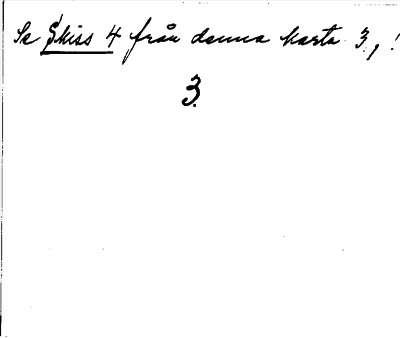 Se Skiss 4 från denna karta 3, !
3.